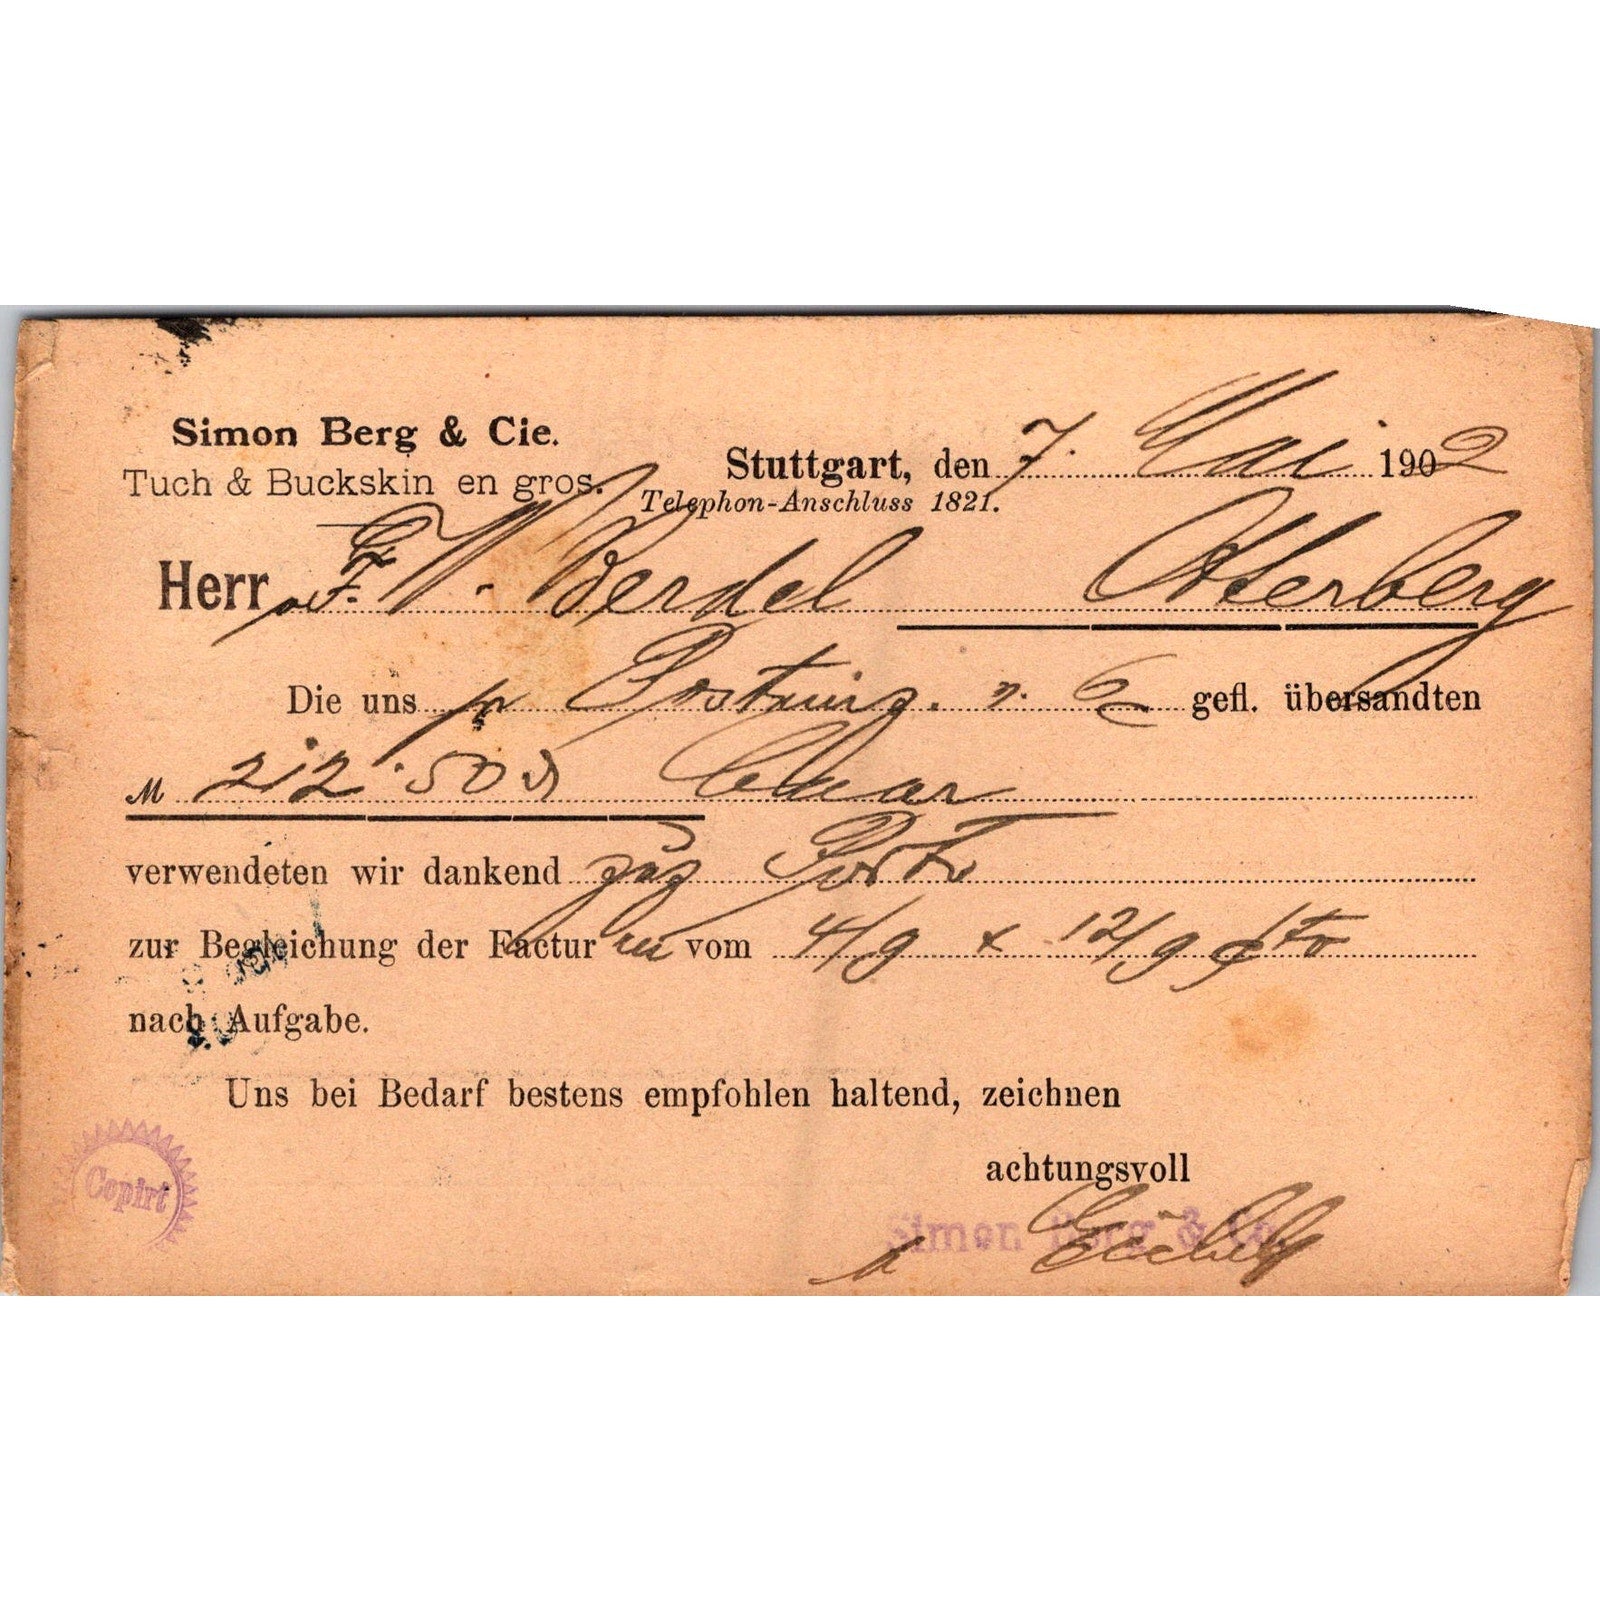 Simon Berg & Cie.
Tuch & Buckskin en gros.
Stuttgart, den 7. Mai 1902
Telephon-Anschluss 1821.
Herr F. W. Berdel Otterberg
Die uns pr Posteinz. v. 6/5 gefl. übersandten
M 212.50 Baar
verwendeten wir dankend zuz Porto
zur Begleichung der Factur en vom 4/9 & 12/9
nach Aufgabe.
Uns bei Bedarf bestens empfohlen haltend, zeichnen
achtungsvoll
Simon Berg & Co.
Copirt